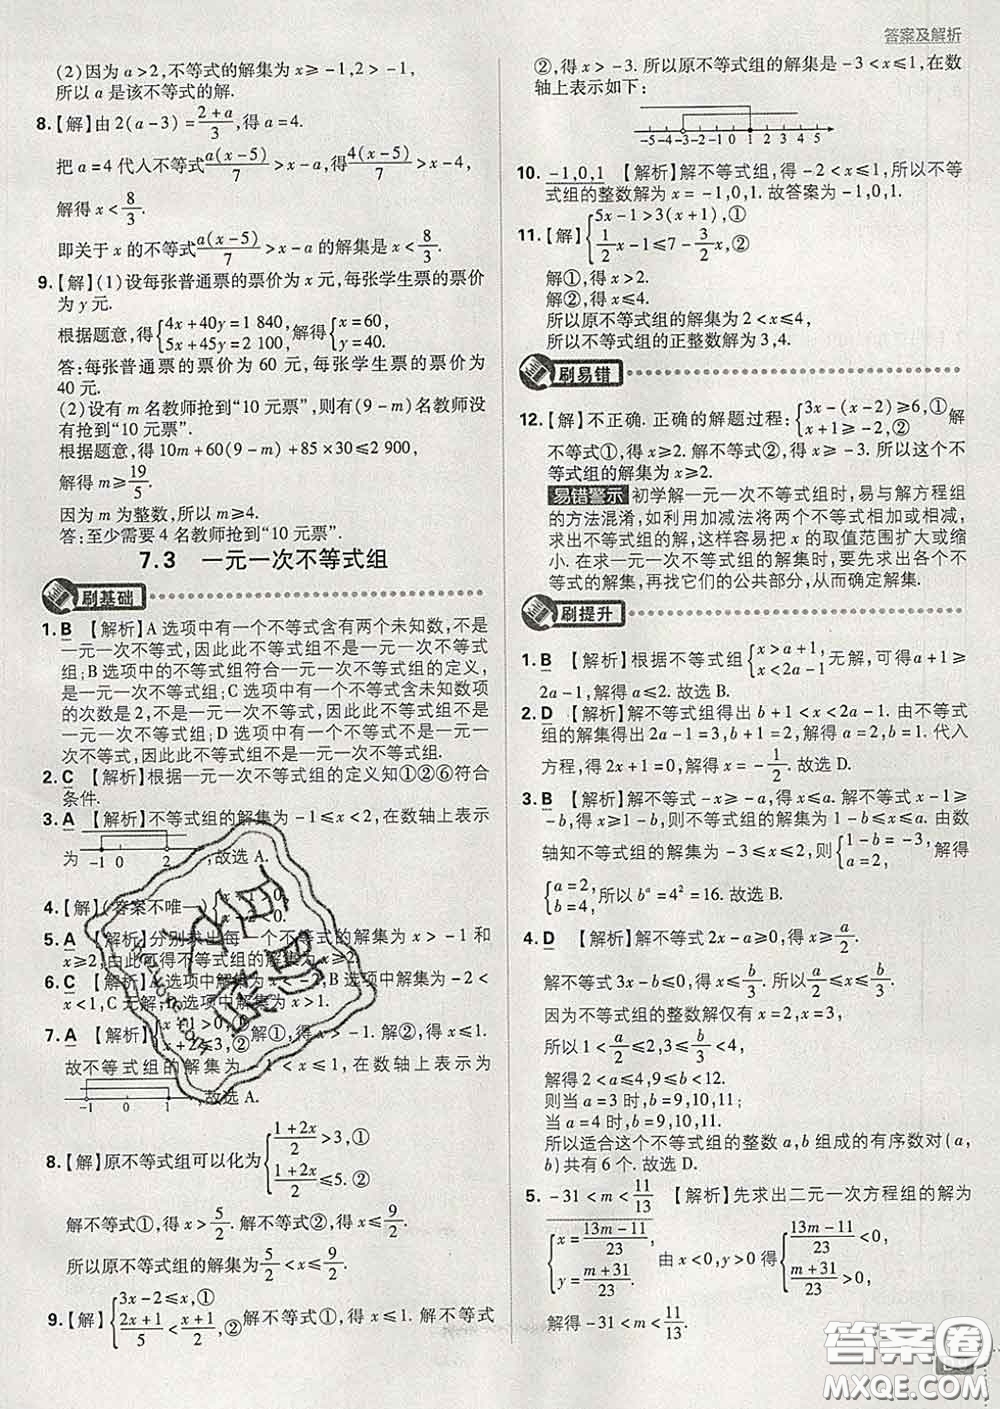 答案及解析
(2)因为 a>2,不等式的解集为x≥-1,2>-1,
所以 a 是该不等式的解.
8.【解】由 2(a-3)=(2+a)/3,得 a=4.
把 a=4 代入不等式 a(x-5)/7>x-a,得 4(x-5)/7>x-4,
解得 x<8/3.
即关于 x 的不等式 a(x-5)/7>x-a 的解集是 x<8/3.
9.【解】(1)设每张普通票的票价为 x 元,每张学生票的票价
为 y 元.
根据题意,得{4x+40y=1 840, 5x+45y=2 100,解得{x=60, y=40.
答:每张普通票的票价为 60 元,每张学生票的票价为
40 元.
(2)设有 m 名教师抢到“10 元票”,则有(9-m)名教师没
有抢到“10 元票”.
根据题意,得 10m+60(9-m)+85×30≤2 900,
解得 m≥19/5.
因为 m 为整数,所以 m≥4.
答:至少需要 4 名教师抢到“10 元票”.
7.3 一元一次不等式组
刷基础
1. B 【解析】A 选项中有一个不等式含有两个未知数,不是
一元一次不等式,因此此不等式组不是一元一次不等式
组;B 选项中的不等式组符合一元一次不等式组的定义,
是一元一次不等式组;C 选项中有一个不等式含未知数项
的次数是2,不是一元一次不等式,因此此不等式组不是
一元一次不等式组;D 选项中有一个不等式不是一元一
次不等式,因此此不等式组不是一元一次不等式组.
2. C 【解析】根据一元一次不等式组的定义知①②⑥符合
条件.
3. A 【解析】不等式组的解集为 -1≤x<2,在数轴上表示
为 -1 0 2 ,故选 A.
4.【解】(答案不唯一)
5. A 【解析】分别求出每一个不等式的解集为 x>-1 和
x≥2,由此可得不等式组的解集为 x≥2.
6. C 【解析】A 选项中解集为 x<-2,B 选项中解集为 -2<
x<1,C 无解,D 选项中解集为 x>1.
7. A 【解析】{x+1>0,① x+2≤3,②解①,得 x>-1. 解②,得 x≤1.
故不等式组的解集为 -1<x≤1,在数轴上表示为
-1 0 1 ,故选 A.
8.【解】原不等式组可以化为{(1+2x)/2>3,① (1+2x)/2≤5.②
解不等式①,得 x>5/2. 解不等式②,得 x≤9/2.
所以原不等式组的解集为 5/2<x≤9/2.
9.【解】{3x-2≤x,① (2x+1)/5<(x+1)/2,②解不等式①,得 x≤1. 解不等式
②,得 x>-3. 所以原不等式组的解集是 -3<x≤1,在数
轴上表示如下:
-5 -4 -3 -2 -1 0 1 2 3 4 5
10. -1,0,1 【解析】解不等式组,得 -2<x≤1,所以不等
式组的整数解为 x=-1,0,1. 故答案为 -1,0,1.
11.【解】{5x-1>3(x+1),① (1/2)x-1≤7-(3/2)x,②
解①,得 x>2.
解②,得 x≤4.
所以原不等式组的解集为 2<x≤4,
所以不等式组的正整数解为 3,4.
刷易错
12.【解】不正确. 正确的解题过程:{3x-(x-2)≥6,① x+1≥-2,②解
不等式①,得 x≥2. 解不等式②,得 x≥-3. 所以这个不
等式组的解集为 x≥2.
易错警示 初学解一元一次不等式组时,易与解方程组
的方法混淆,如利用加减法将两个不等式相加或相减,
求出不等式的解集,这样容易把 x 的取值范围扩大或
缩小. 在求一元一次不等式组的解集时,要先求出各个不
等式的解集,再找它们的公共部分,从而确定解集.
刷提升
1. B 【解析】根据不等式组{x>a+1, x<2a-1无解,可得 a+1≥
2a-1,解得 a≤2. 故选 B.
2. D 【解析】解不等式组得出 b+1<x<2a-1. 由不等式
组的解集得出 2a-1=3,b+1=2,解得 a=2,b=1. 代入
方程,得 2x+1=0,解得 x=-1/2. 故选 D.
3. B 【解析】解不等式 -x≥-a,得 x≤a. 解不等式 x-1≥
-b,得 x≥1-b,则不等式组的解集为 1-b≤x≤a. 由
数轴知不等式组的解集为 -3≤x≤2,则{1-b=-3, a=2,解得
{a=2, b=4,所以 bᵃ=4²=16. 故选 B.
4. D 【解析】解不等式 2x-a≥0,得 x≥a/2.
解不等式 3x-b≤0,得 x≤b/3. 所以 a/2≤x≤b/3.
因为不等式组的整数解仅有 x=2,x=3,
所以 1<a/2≤2,3≤b/3<4,
解得 2<a≤4,9≤b<12.
则当 a=3 时,b=9,10,11;
当 a=4 时,b=9,10,11.
所以适合这个不等式组的整数 a,b 组成的有序数对(a,
b)共有 6 个. 故选 D.
5. -31<m<11/13 【解析】先求出二元一次方程组的解为
{x=(13m-11)/23, y=(m+31)/23, 由 x<0,y>0 得{(13m-11)/23<0, (m+31)/23>0,
解得 -31<m<11/13.
答案圈
MXQE.COM